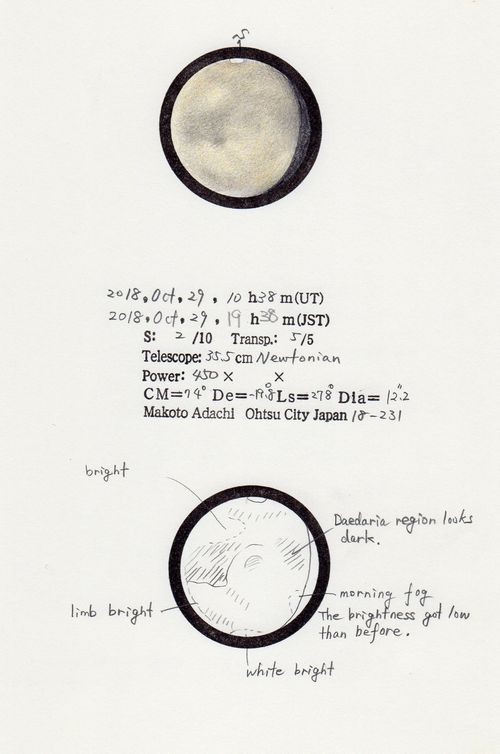 S
2018, Oct, 29, 10 h 38 m (UT)
2018, Oct, 29, 19 h 38 m (JST)
S: 2 /10 Transp.: 5/5
Telescope: 35.5 cm Newtonian
Power: 450 × ×
CM=74° De=-19.8° Ls=278° Dia= 12.2"
Makoto Adachi Ohtsu City Japan 18-231
bright
Daedaria region looks
dark.
morning fog
limb bright
The brightness got low
than before.
white bright